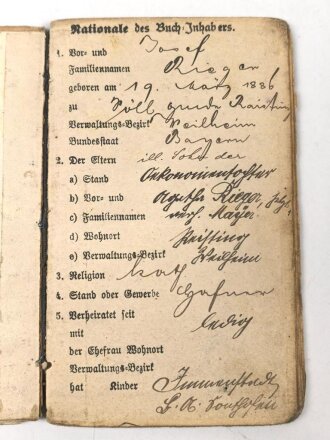 Nationale des Buch-Inhabers.
1. Vor- und Josef
Familiennamen Rieger
geboren am 19. März 1886
zu Raisting
Verwaltungs-Bezirk Weilheim
Bundesstaat Bayern
2. Der Eltern ill. Sohn der
a) Stand Ökonomentochter
b) Vor- und Agatha Rieger, jetzt
c) Familiennamen Mayer
d) Wohnort Raisting
e) Verwaltungs-Bezirk Weilheim
3. Religion kath
4. Stand oder Gewerbe Hafner
5. Verheiratet seit ledig
mit
der Ehefrau Wohnort
Verwaltungs-Bezirk
hat Kinder Immenstadt
B. A. Sonthofen